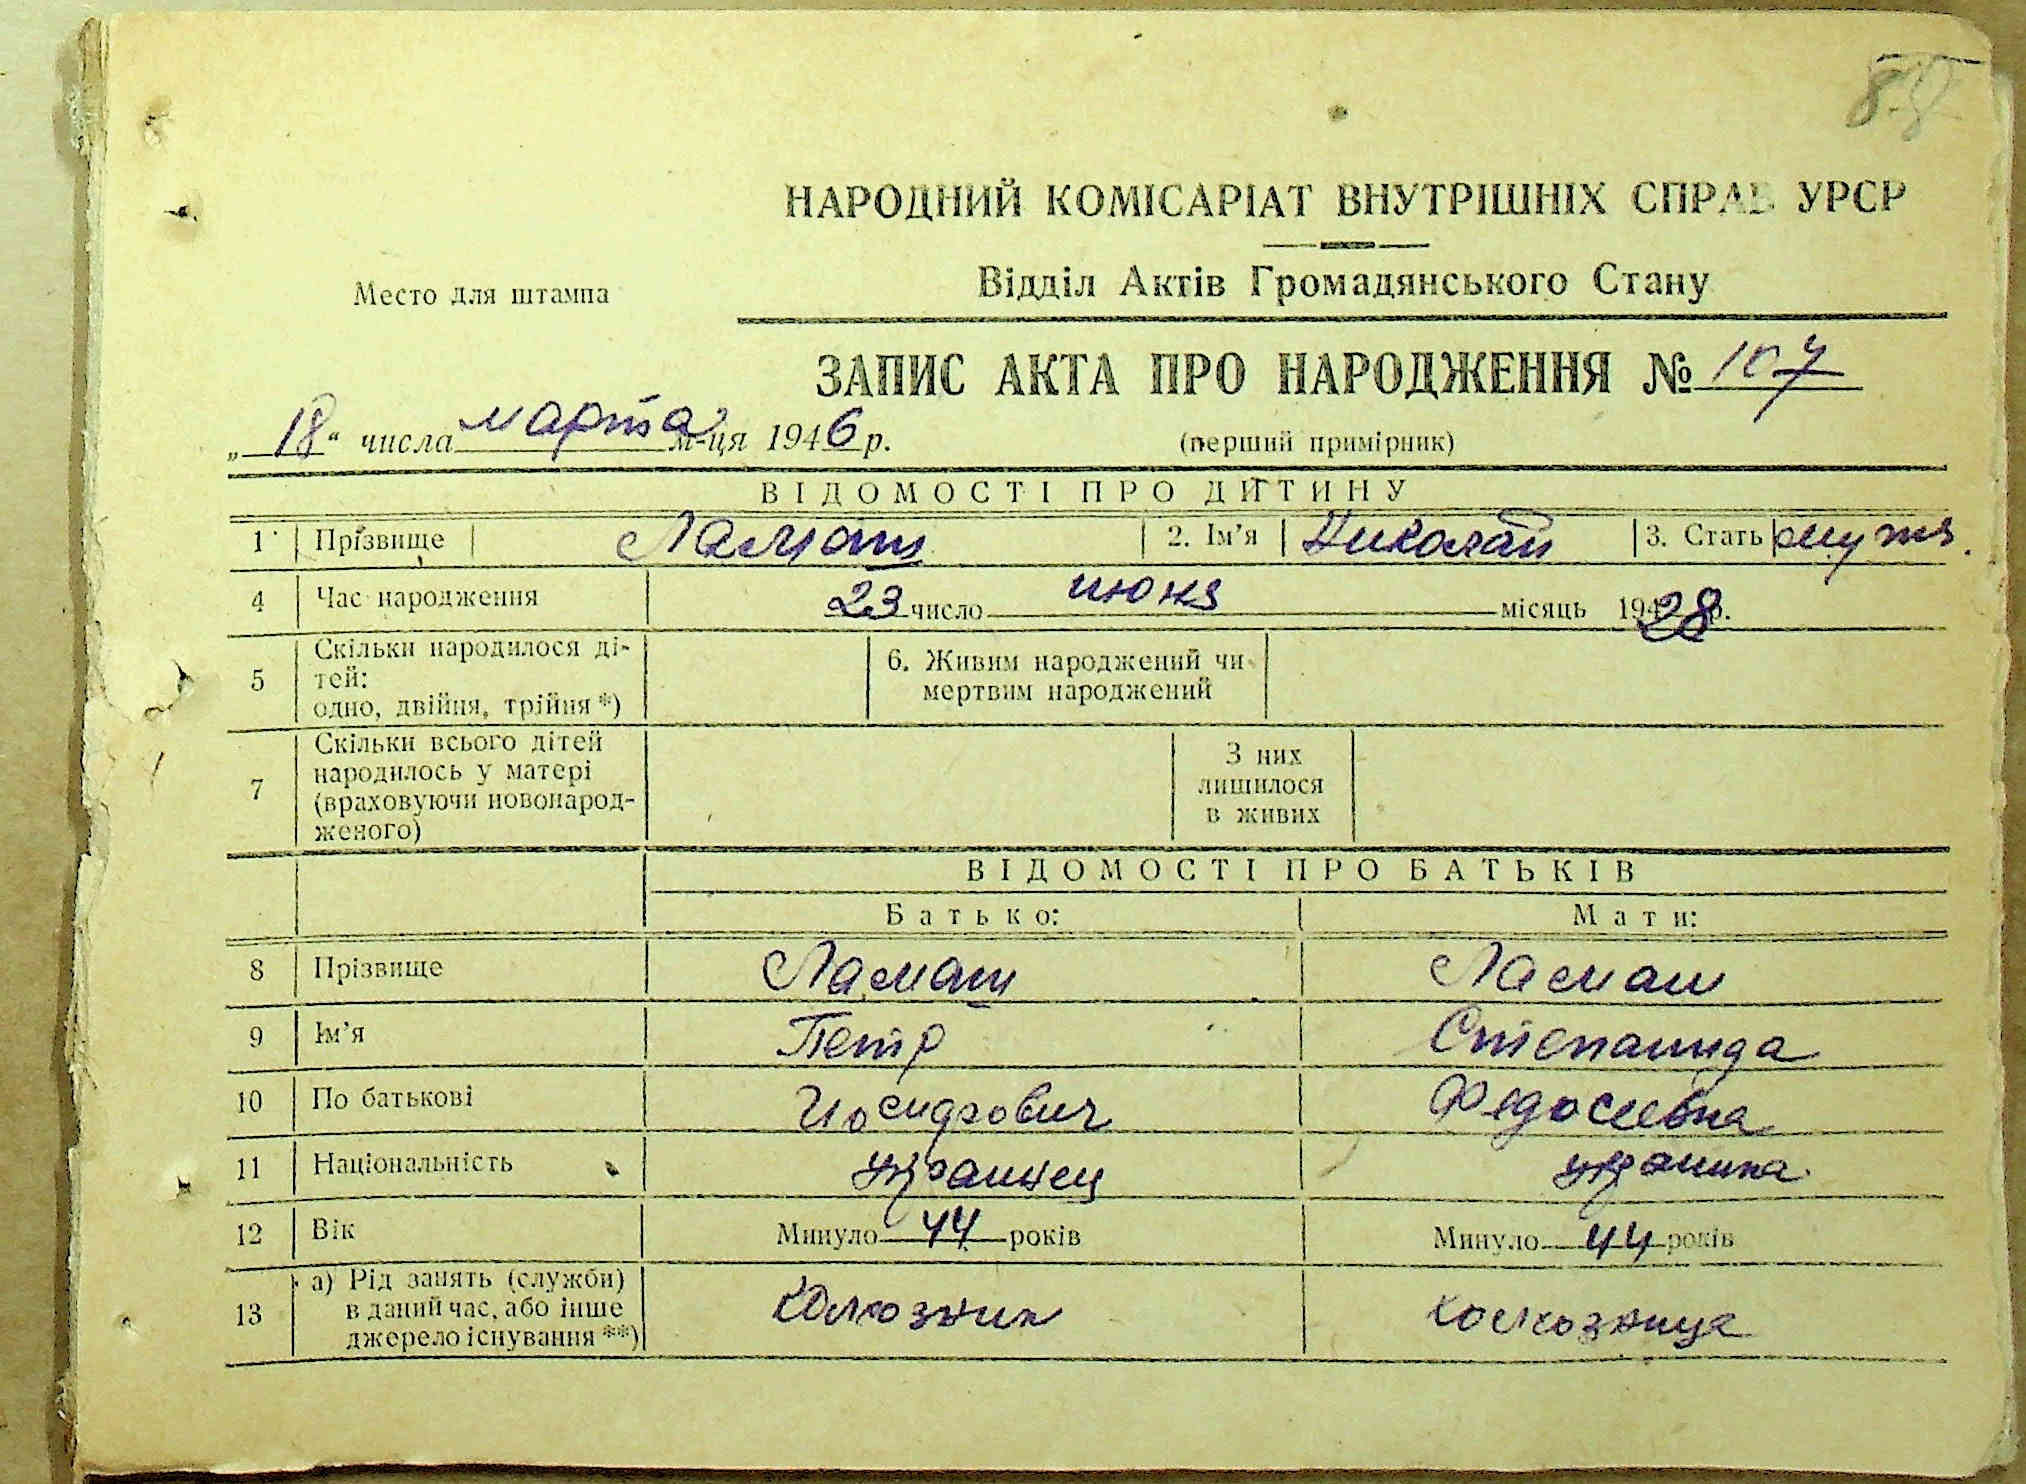 88
НАРОДНИЙ КОМІСАРІАТ ВНУТРІШНІХ СПРАВ УРСР
Место для штампа
Відділ Актів Громадянського Стану
ЗАПИС АКТА ПРО НАРОДЖЕННЯ № 107
„18“ числа марта м-ця 1946 р. (перший примірник)
ВІДОМОСТІ ПРО ДИТИНУ
1 Прізвище Ламаш 2. Ім’я Николай 3. Стать муж.
4 Час народження 23 число июня місяць 1928 р.
5 Скільки народилося ді-
тей:
одно, двійня, трійня *)
6. Живим народжений чи
мертвим народжений
7 Скільки всього дітей
народилось у матері
(враховуючи новонарод-
женого)
З них
лишилося
в живих
ВІДОМОСТІ ПРО БАТЬКІВ
Батько: Мати:
8 Прізвище Ламаш Ламаш
9 Ім’я Петр Степанида
10 По батькові Иосифович Федосеевна
11 Національність украинец украинка
12 Вік Минуло 44 років Минуло 44 років
13 а) Рід занять (служби)
в даний час, або інше
джерело існування **)
колхозник колхозница